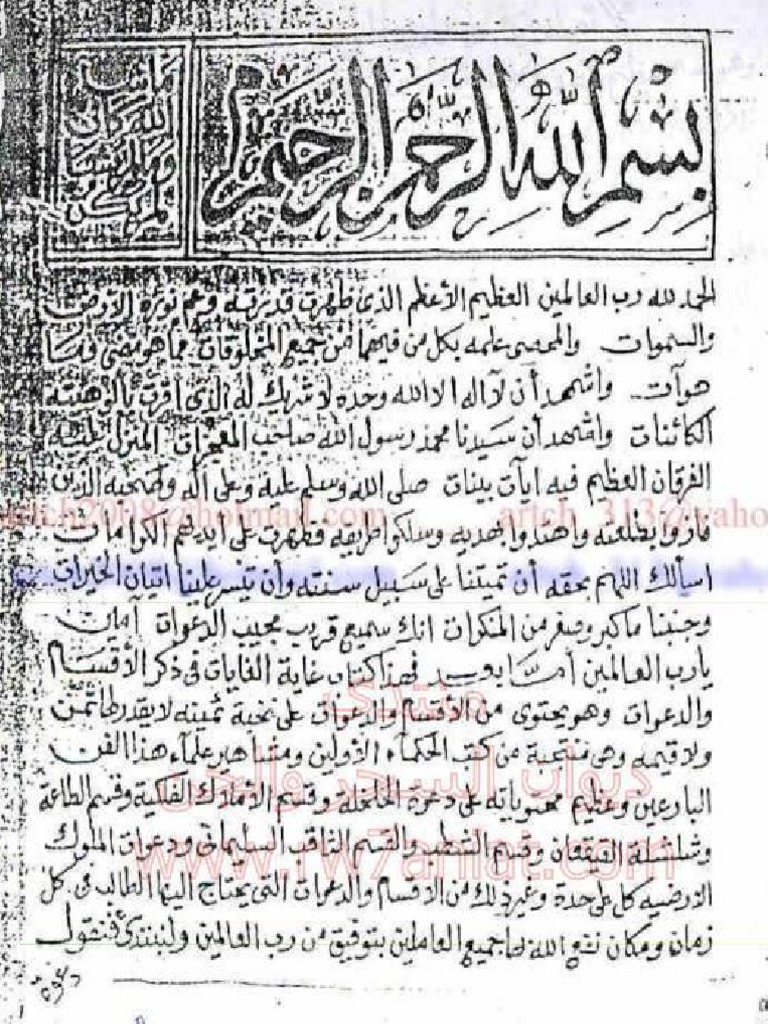 بسم الله الرحمن الرحيم
ما شاء
الله كان
وما لم يشأ
لم يكن
الحمد لله رب العالمين العظيم الأعظم الذي ظهرت قدرته وعم نوره الأرض
والسموات والمحصى علمه بكل من فيها من جميع المخلوقات مما هو مضى وما
هوآت واشهد أن لآاله الا الله وحده لا شريك له الذي أقرت بألوهيته
الكائنات واشهد أن سيدنا محمد رسول الله صاحب المعجزات المنزل عليه
الفرقان العظيم فيه ايآت بينات صلى الله وسلم عليه وعلى آله وصحبه الذين
فازوا بطلعته واهتدوا بهديه وسلكوا طريقه فظهرت على أيديهم الكرامات
اسألك اللهم بحقه أن تميتنا على سبيل سنته وأن تيسر علينا اتيان الخيرات
وجنبنا ما كبر وصغر من المنكرات انك سميع قريب مجيب الدعوات آمين
يارب العالمين أمــا بعــد فهذا كتاب غاية الغايات في ذكر الأقسام
والدعوات وهو يحتوى من الأقسام والدعوات على نخبة ثمينه لا يقدر لها ثمن
ولا قيمه وهى منتخبة من كتب الحكماء الأولين ومشاهير علماء هذا الفن
البارعين وعظيم محتوياته على دعوة الخلخلة وقسم الأملاك الفلكية وقسم الطاعة
وشلشلة القيقفان وقسم الشطب والقسم الثاقب السليمانى ودعوات الملوك
الارضيه كل على حدة وغير ذلك من الاقسام والدعوات التى يحتاج اليها الطالب فى كل
زمان ومكان نفع الله بها جميع العاملين بتوفيق من رب العالمين ولنبتدئ فنقول
artch2008@hotmail.com artch_313@yaho
منتدى
ديوان السحر والجن
www.rw7aniat.com